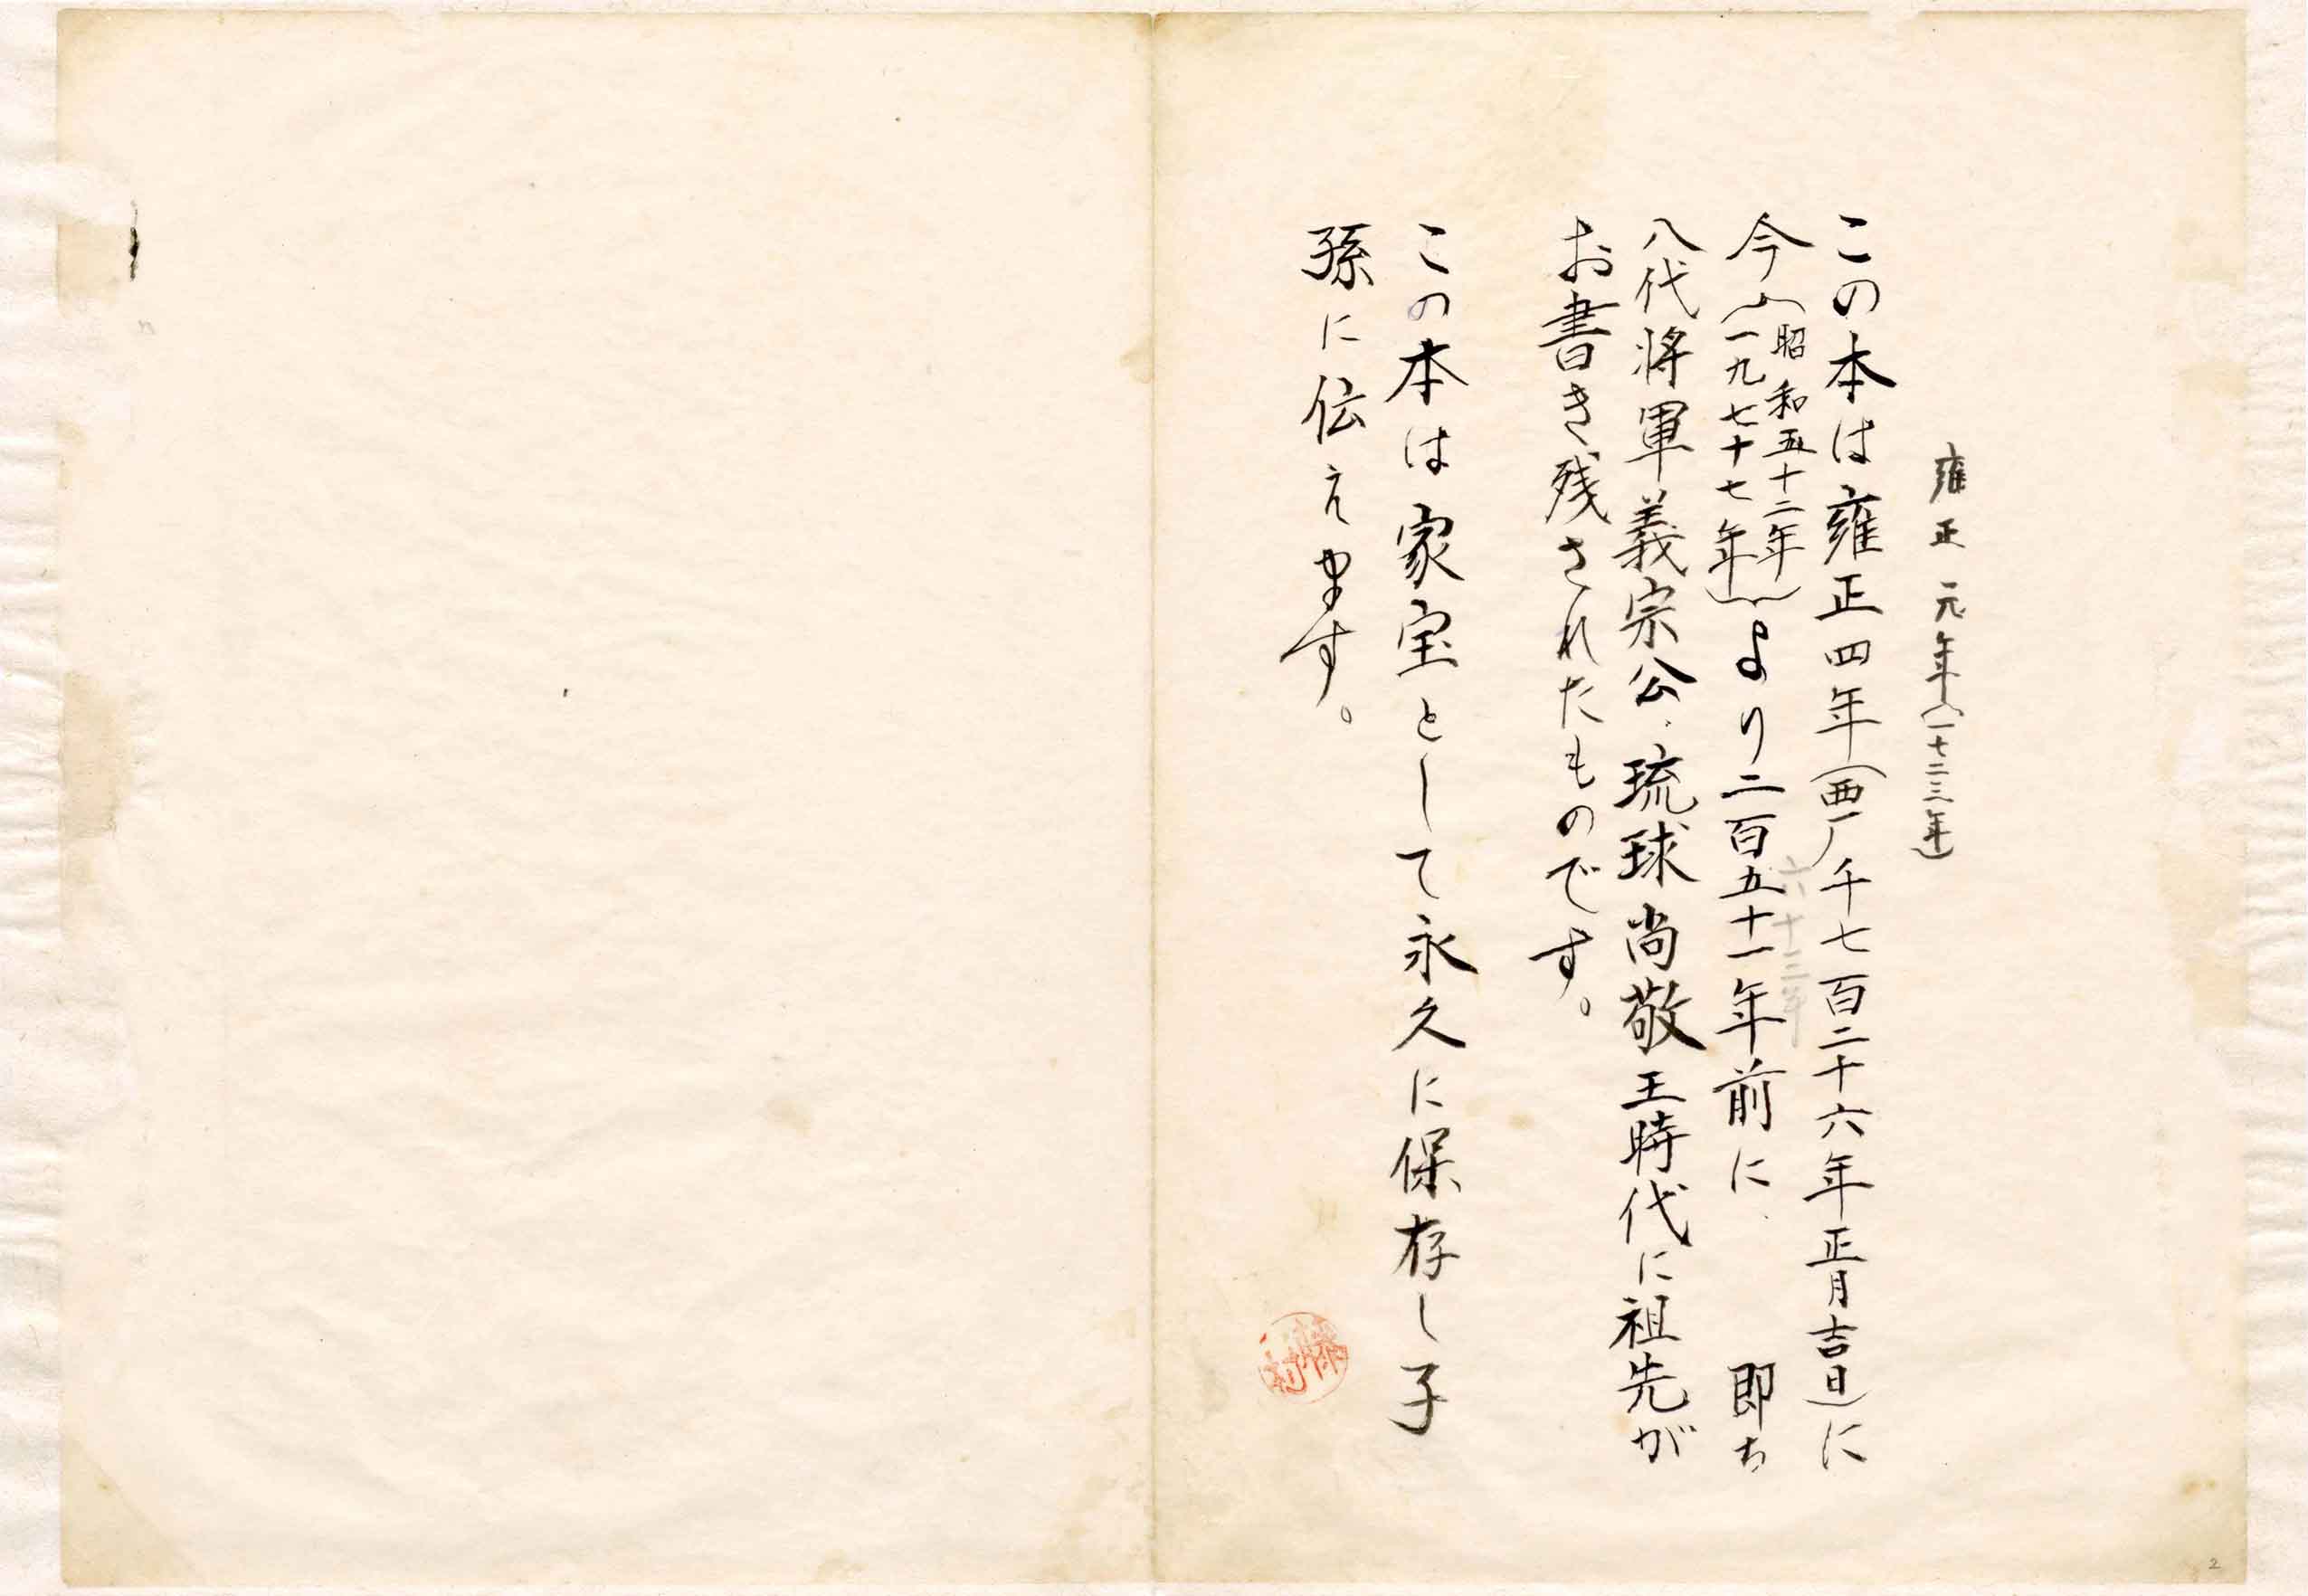 雍正元年(一七二三年)
この本は雍正四年(西一千七百二十六年正月吉日)に
今(昭和五十二年)(一九七十七年)より二百五十一年前に 即ち
六十三年
八代将軍義宗公、琉球尚敬王時代に祖先が
お書き残されたものです。
この本は家宝として永久に保存し子
孫に伝えます。
2